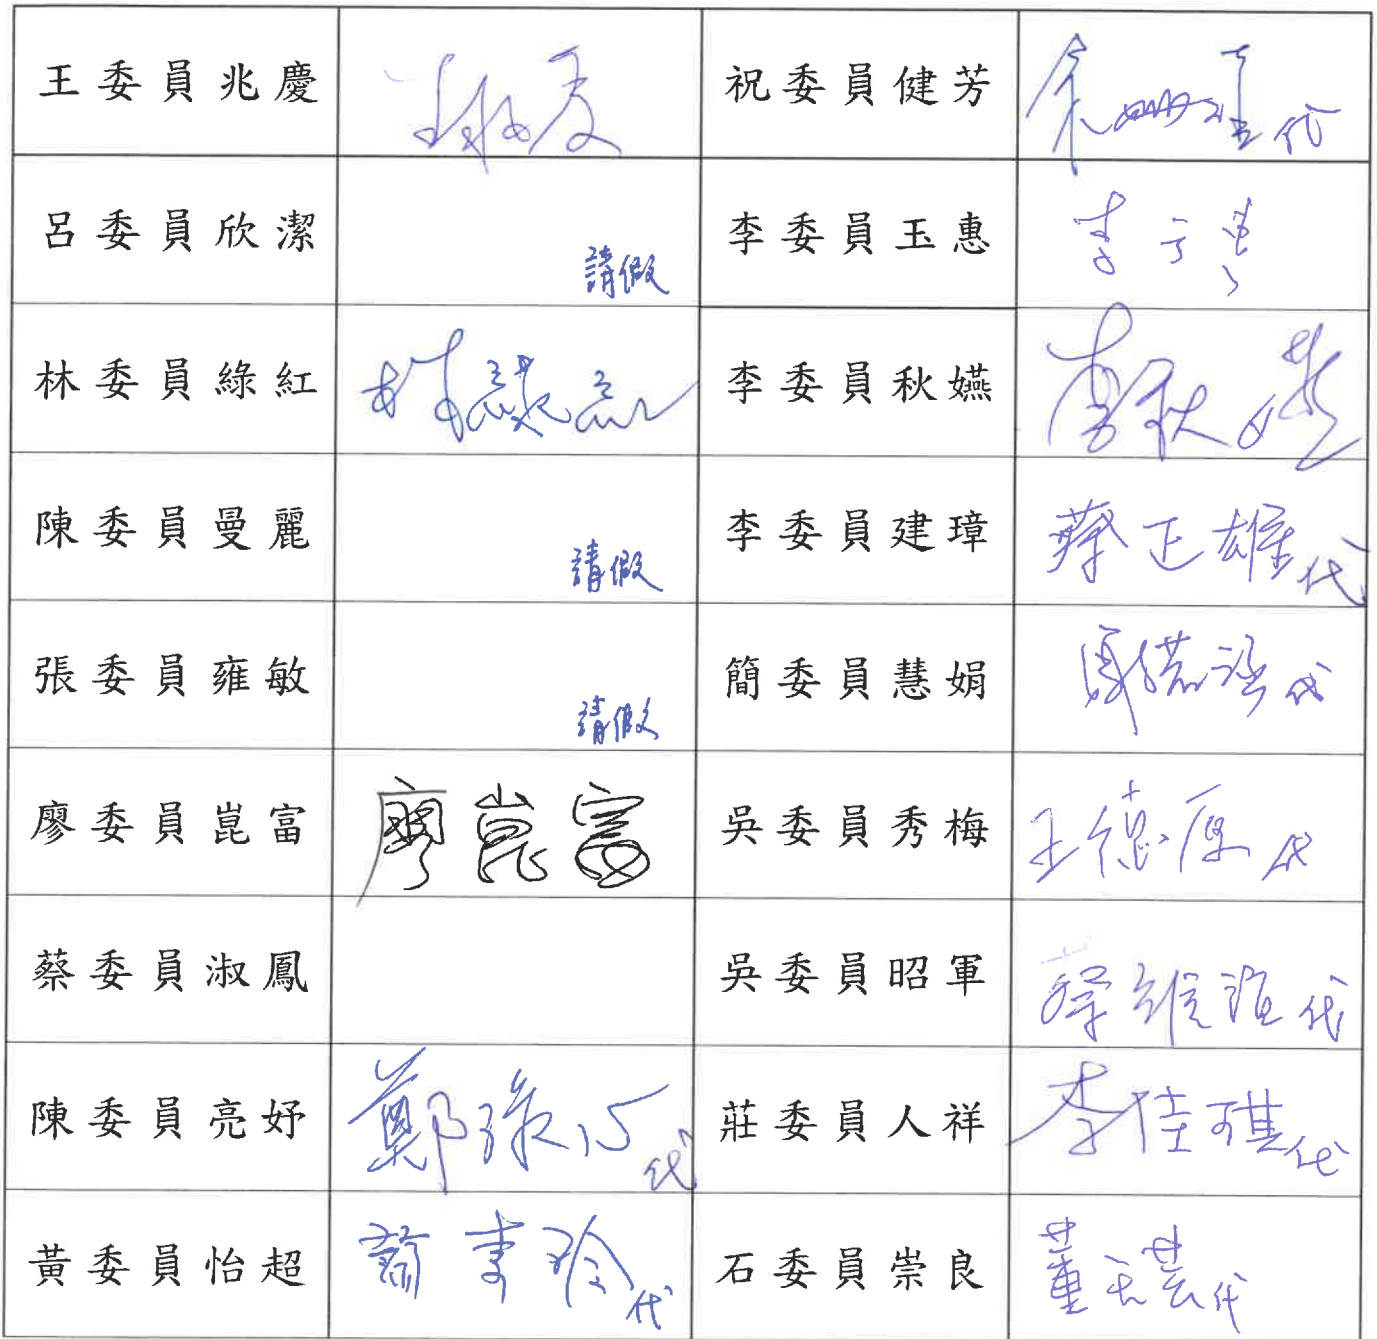 王委員兆慶 王兆慶 祝委員健芳 代
呂委員欣潔 請假 李委員玉惠 李玉惠
林委員綠紅 林綠紅 李委員秋嬿 李秋嬿
陳委員曼麗 請假 李委員建璋 蔡正雄代
張委員雍敏 請假 簡委員慧娟 代
廖委員崑富 廖崑富 吳委員秀梅 王德原代
蔡委員淑鳳 吳委員昭軍 蔡 代
陳委員亮妤 鄭 代 莊委員人祥 李佳琪代
黃委員怡超 代 石委員崇良 董 代